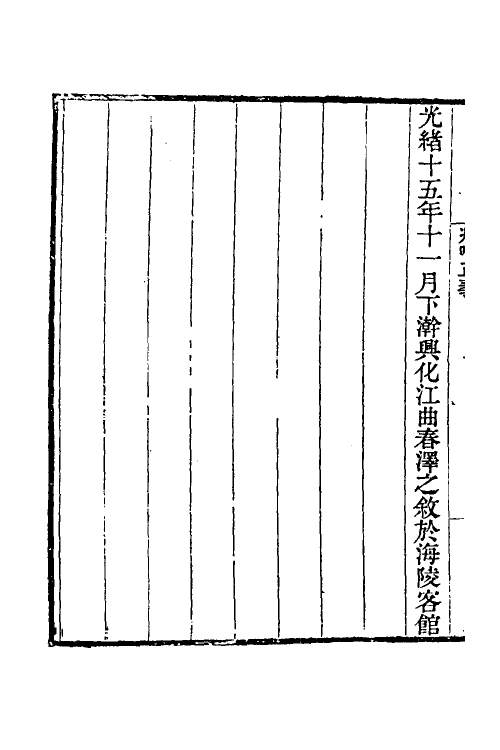 光緒十五年十一月下澣興化江曲春澤之敘於海陵客館